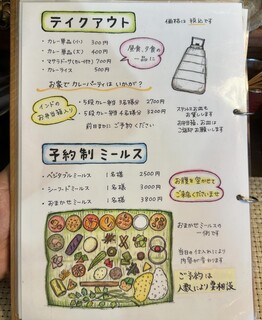 テイクアウト
価格は税込です
・カレー単品(小) 300円
・カレー単品(大) 400円
・マサラドーサ(カレー付) 700円
・カレーライス 500円
昼食、夕食の
一品に
お家でカレーパーティはいかが?
インドの
お弁当箱入り
5段カレー弁当 3名様分 2700円
5段カレー弁当 4名様分 3200円
前日までにご予約ください
お貸しします
お弁当箱、お皿は
ご返却お願いします
予約制 ミールス
・ベジタブルミールス 1名様 2500円
・シーフードミールス 1名様 3000円
・おまかせミールス 1名様 3800円
お腹を空かせて
ご来店くださいませ
おまかせミールスの
一例です
内容が変わります
ご予約は
人数により要相談